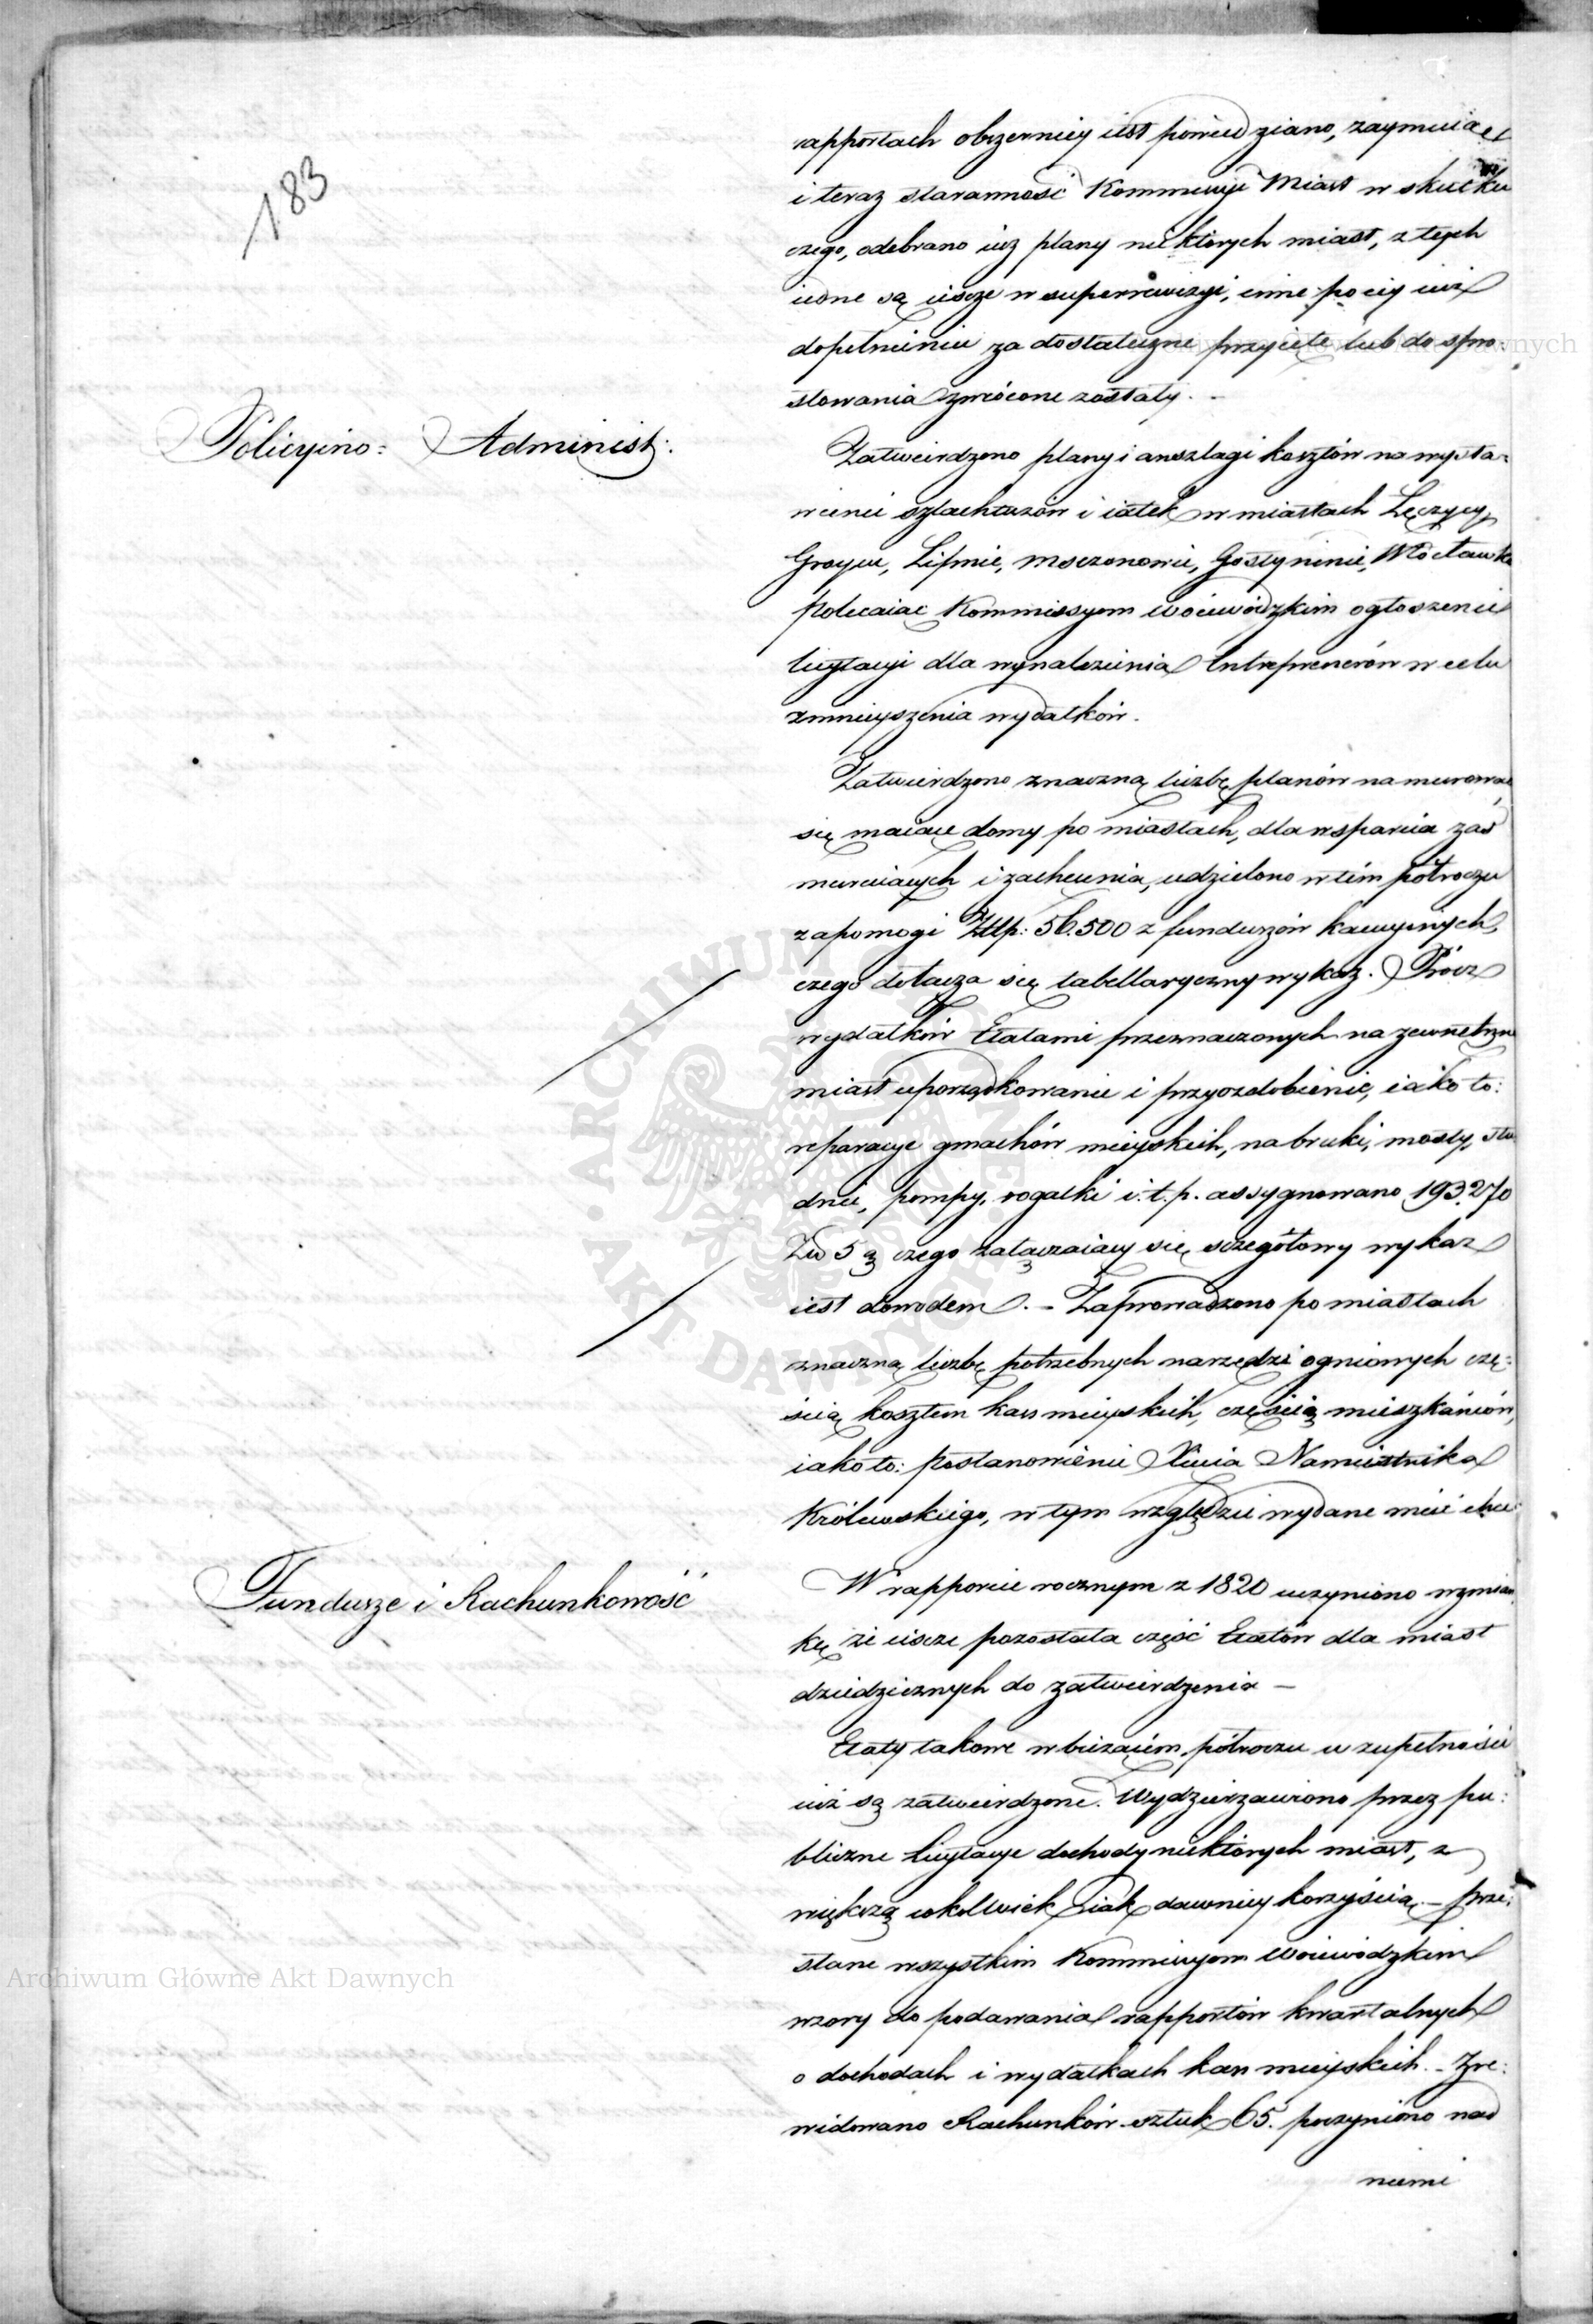 183
rapportach obszerniey iest powiedziano, zaymuiąc
i teraz staranność Kommissyi Miast w skutku
czego, odebrano iuż plany niektórych miast, z tych
iedne są iescze w superrewizyi, inne po iey iuż
dopełnieniu za dostateczne przyięte lub do spro-
stowania zwrócone zostały. -
Policyino: Administ:
Zatwierdzono plany i anszlagi kosztów na wysta-
wienie szlachtuzów i iatek w miastach Łęczycy,
Groycu, Lipnie, Mszczonowie, Gostyninie, Włocławku
polecaiąc Kommissyom woiewódzkim ogłoszenie
licytacyi dla wynalezienia Entreprenerów w celu
zmnieyszenia wydatków.
Zatwierdzono znaczną liczbę planów na murować
się maiące domy po miastach, dla wsparcia zaś
muruiących i zachęcenia, udzielono w tém półroczu
zapomogi Złlp: 56.500 z funduszów kaucyinych,
czego dołącza się tabellaryczny wykaz. Prócz
wydatków Etatami przeznaczonych na zewnętrzne
miast uporządkowanie i przyozdobienie, iako to:
reparacye gmachów mieyskich, na bruki, mosty, stu-
dnie, pompy, rogatki i.t.p. assygnowano 193.270
Zło 5 g czego załączaiący się sczegółowy wykaz
iest dowodem. - Zaprowadzono po miastach
znaczną liczbę potrzebnych narzędzi ogniowych czę-
ścią kosztem kass mieyskich, częścią mieszkańców,
iako to: postanowienie Xięcia Namiestnika
Królewskiego, w tym względzie wydane mieć chce
Fundusze i Rachunkowość
W rapporcie rocznym z 1820 uczyniono wzmian-
kę że iescze pozostała część Etatów dla miast
dziedzicznych do zatwierdzenia -
Etaty takowe w bieżącém półroczu w zupełności
iuż są zatwierdzone. Wydzierżawiono przez pu:
bliczne Licytacye dochody niektórych miast, z
większą cokolwiek iak dawniey korzyścią. - Prze:
słane wszystkim Kommissyom Woiewódzkim
wzory do podawania rapportów kwartalnych
o dochodach i wydatkach kass mieyskich. - Zre:
widowano Rachunków sztuk 65. poczyniono nad
niemi
Archiwum Główne Akt Dawnych
ARCHIWUM GŁÓWNE AKT DAWNYCH